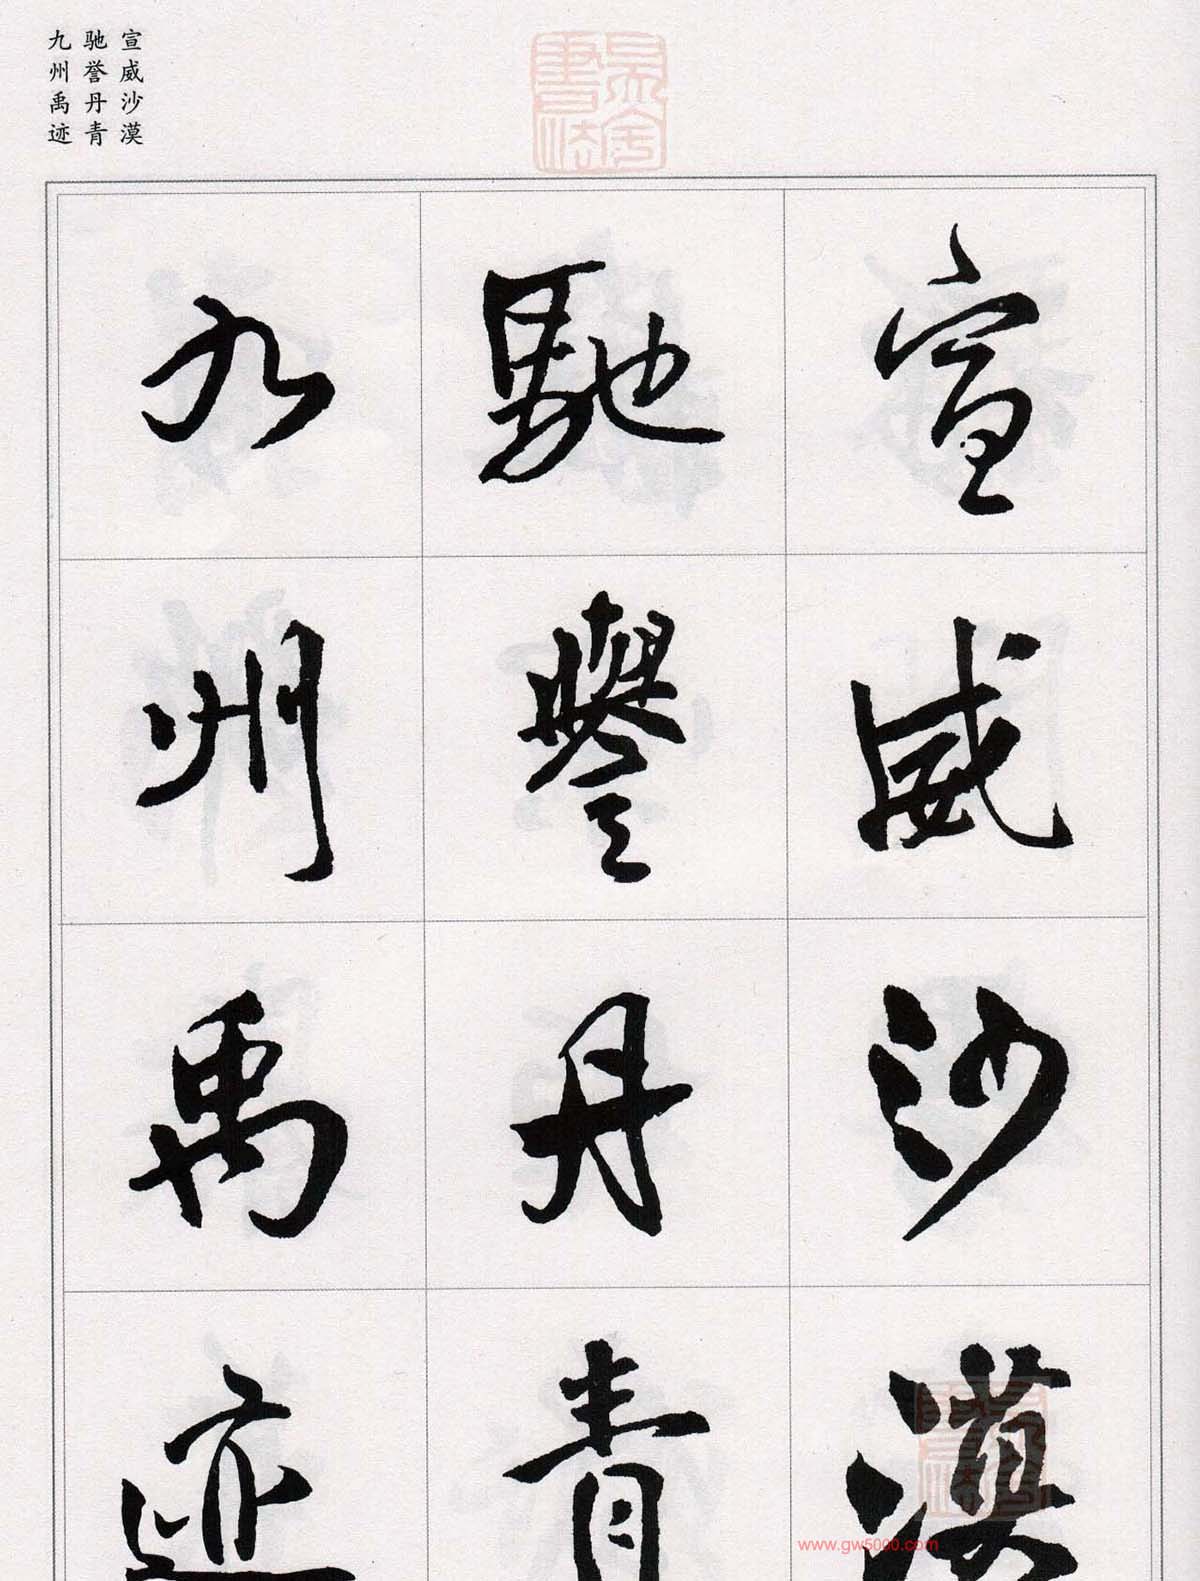 宣威沙漠
驰誉丹青
九州禹迹
宣威沙漠
馳譽丹青
九州禹迹
www.gw5000.com